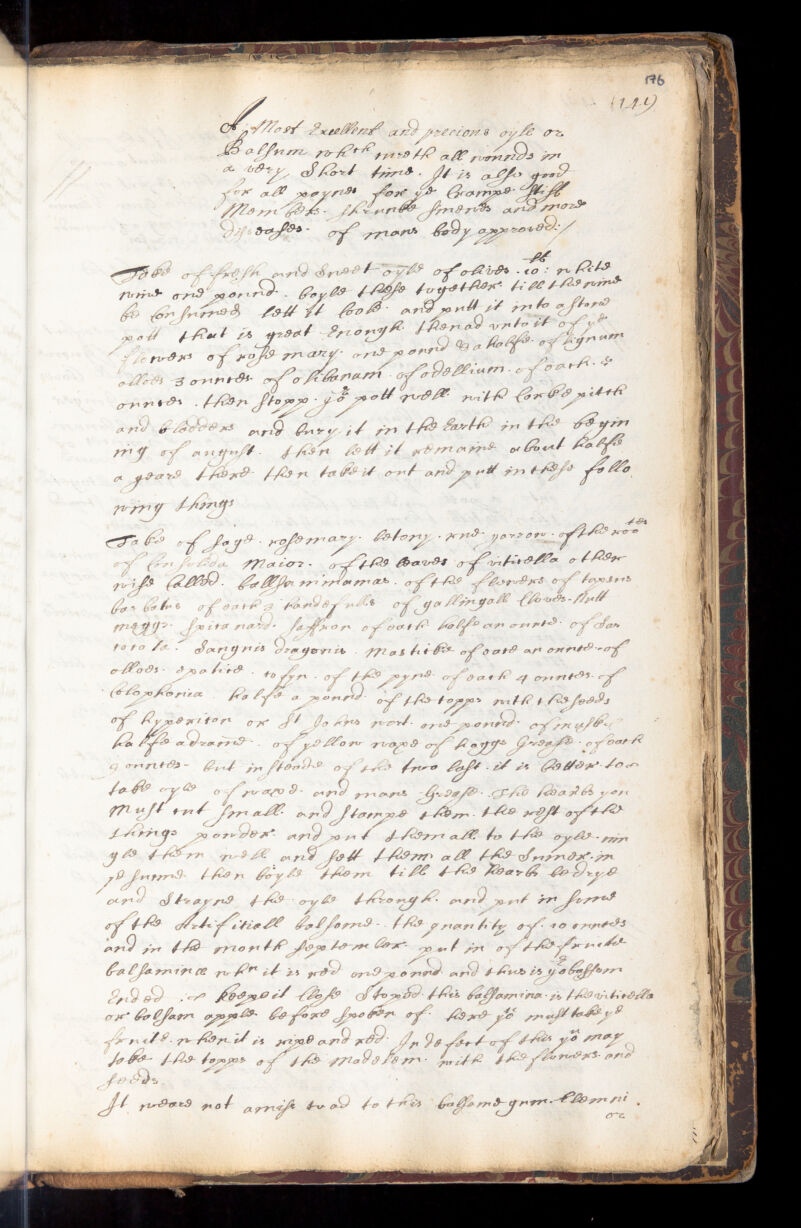 176
(141)
A Most Excellent and precious oyle or
Balsum wh^ch cureth all wounds in
a very Short time. It is also good
for all paynes for y^e Crampe Stiff
Members. shrunke sinewes and more
diseases. of mans body approved:/
Take of fresh and Sweet oyle of olives. 10 ^lb: white
wine one pound. boyle these together till the wine
be Consumed lett it Coole. and putt it into a stone
pott that is great Enough then ad unto it of y^e
flowers of rosemary. one pound & a halfe. of lignum
alloes 3 ounces of olibanam. of odellium. of each. 3
ounces. then stopp. y^e pott well with Corke pitch
and bladders and bury it in the Earth in the begin
ing of august. then lett it remaine about halfe
a yeare there then take it out and putt in these follo
wing things
Take of sage. rosemary. betony. rue. yarrow. of the roo^tes
of Consolida Maior. of the leaves of viticella other
wise Called. ballsaminamas. of the flowers of tapsus
barbatus of each 3 handefulls of gallingall Cloves. Nutt
meggs. spicanard. saffron of each halfe an ounce. of Sar
cocola. Sangnis dragonis. Masticke of eace an ounce. of
alloes. epatice. rosyn. of the pyne of each 4 ounces. of
Colophonia halfe a pound. of the topps with the seeds
of hyperiton or St Johns wort. one pound. of muske
halfe a drame. of yellow waxe of hoggs Grease. of each
9 ounces. but insteade of the two last. it is better to
take oyle of waxe. and mans Grease. The hearbs you
Must cut small. and Stampe them. the rest of the
things powder. and put them all to the oyle. min
gle them well and sett them all the Sumer. in
ye sunne then boyle them till the hearbs be drye
and Strayne the oyle through. and put in some
of the Artifitiall balsome. the quantity of. 10 ounces
and in the month September put in of the fruite
balsaminæ wh^n it is red one pound and thus is y^e balsom
Ended. keepe it Close Stoped this balsamina is the viticella
or balsam apple before spoken of. here y^o must take y^e
fruite. when it is ripe and red. In defect of this y^u may
take the topps of the Madelem. with the flowers and
seeds
It weare not amiss to ad to this balsome gum. Elemni.
or